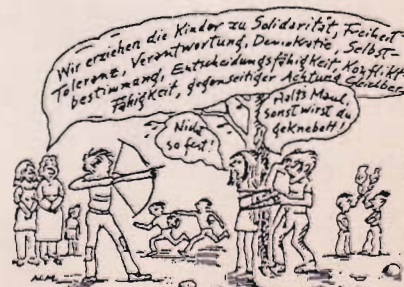 Wir erziehen die Kinder zu Solidarität, Freiheit
Toleranz, Verantwortung, Demokratie, Selbst-
bestimmung, Entscheidungsfähigkeit, Konflikt-
fähigkeit, gegenseitiger Achtung
Nicht
so fest!
Halts Maul,
sonst wirst du
geknebelt!